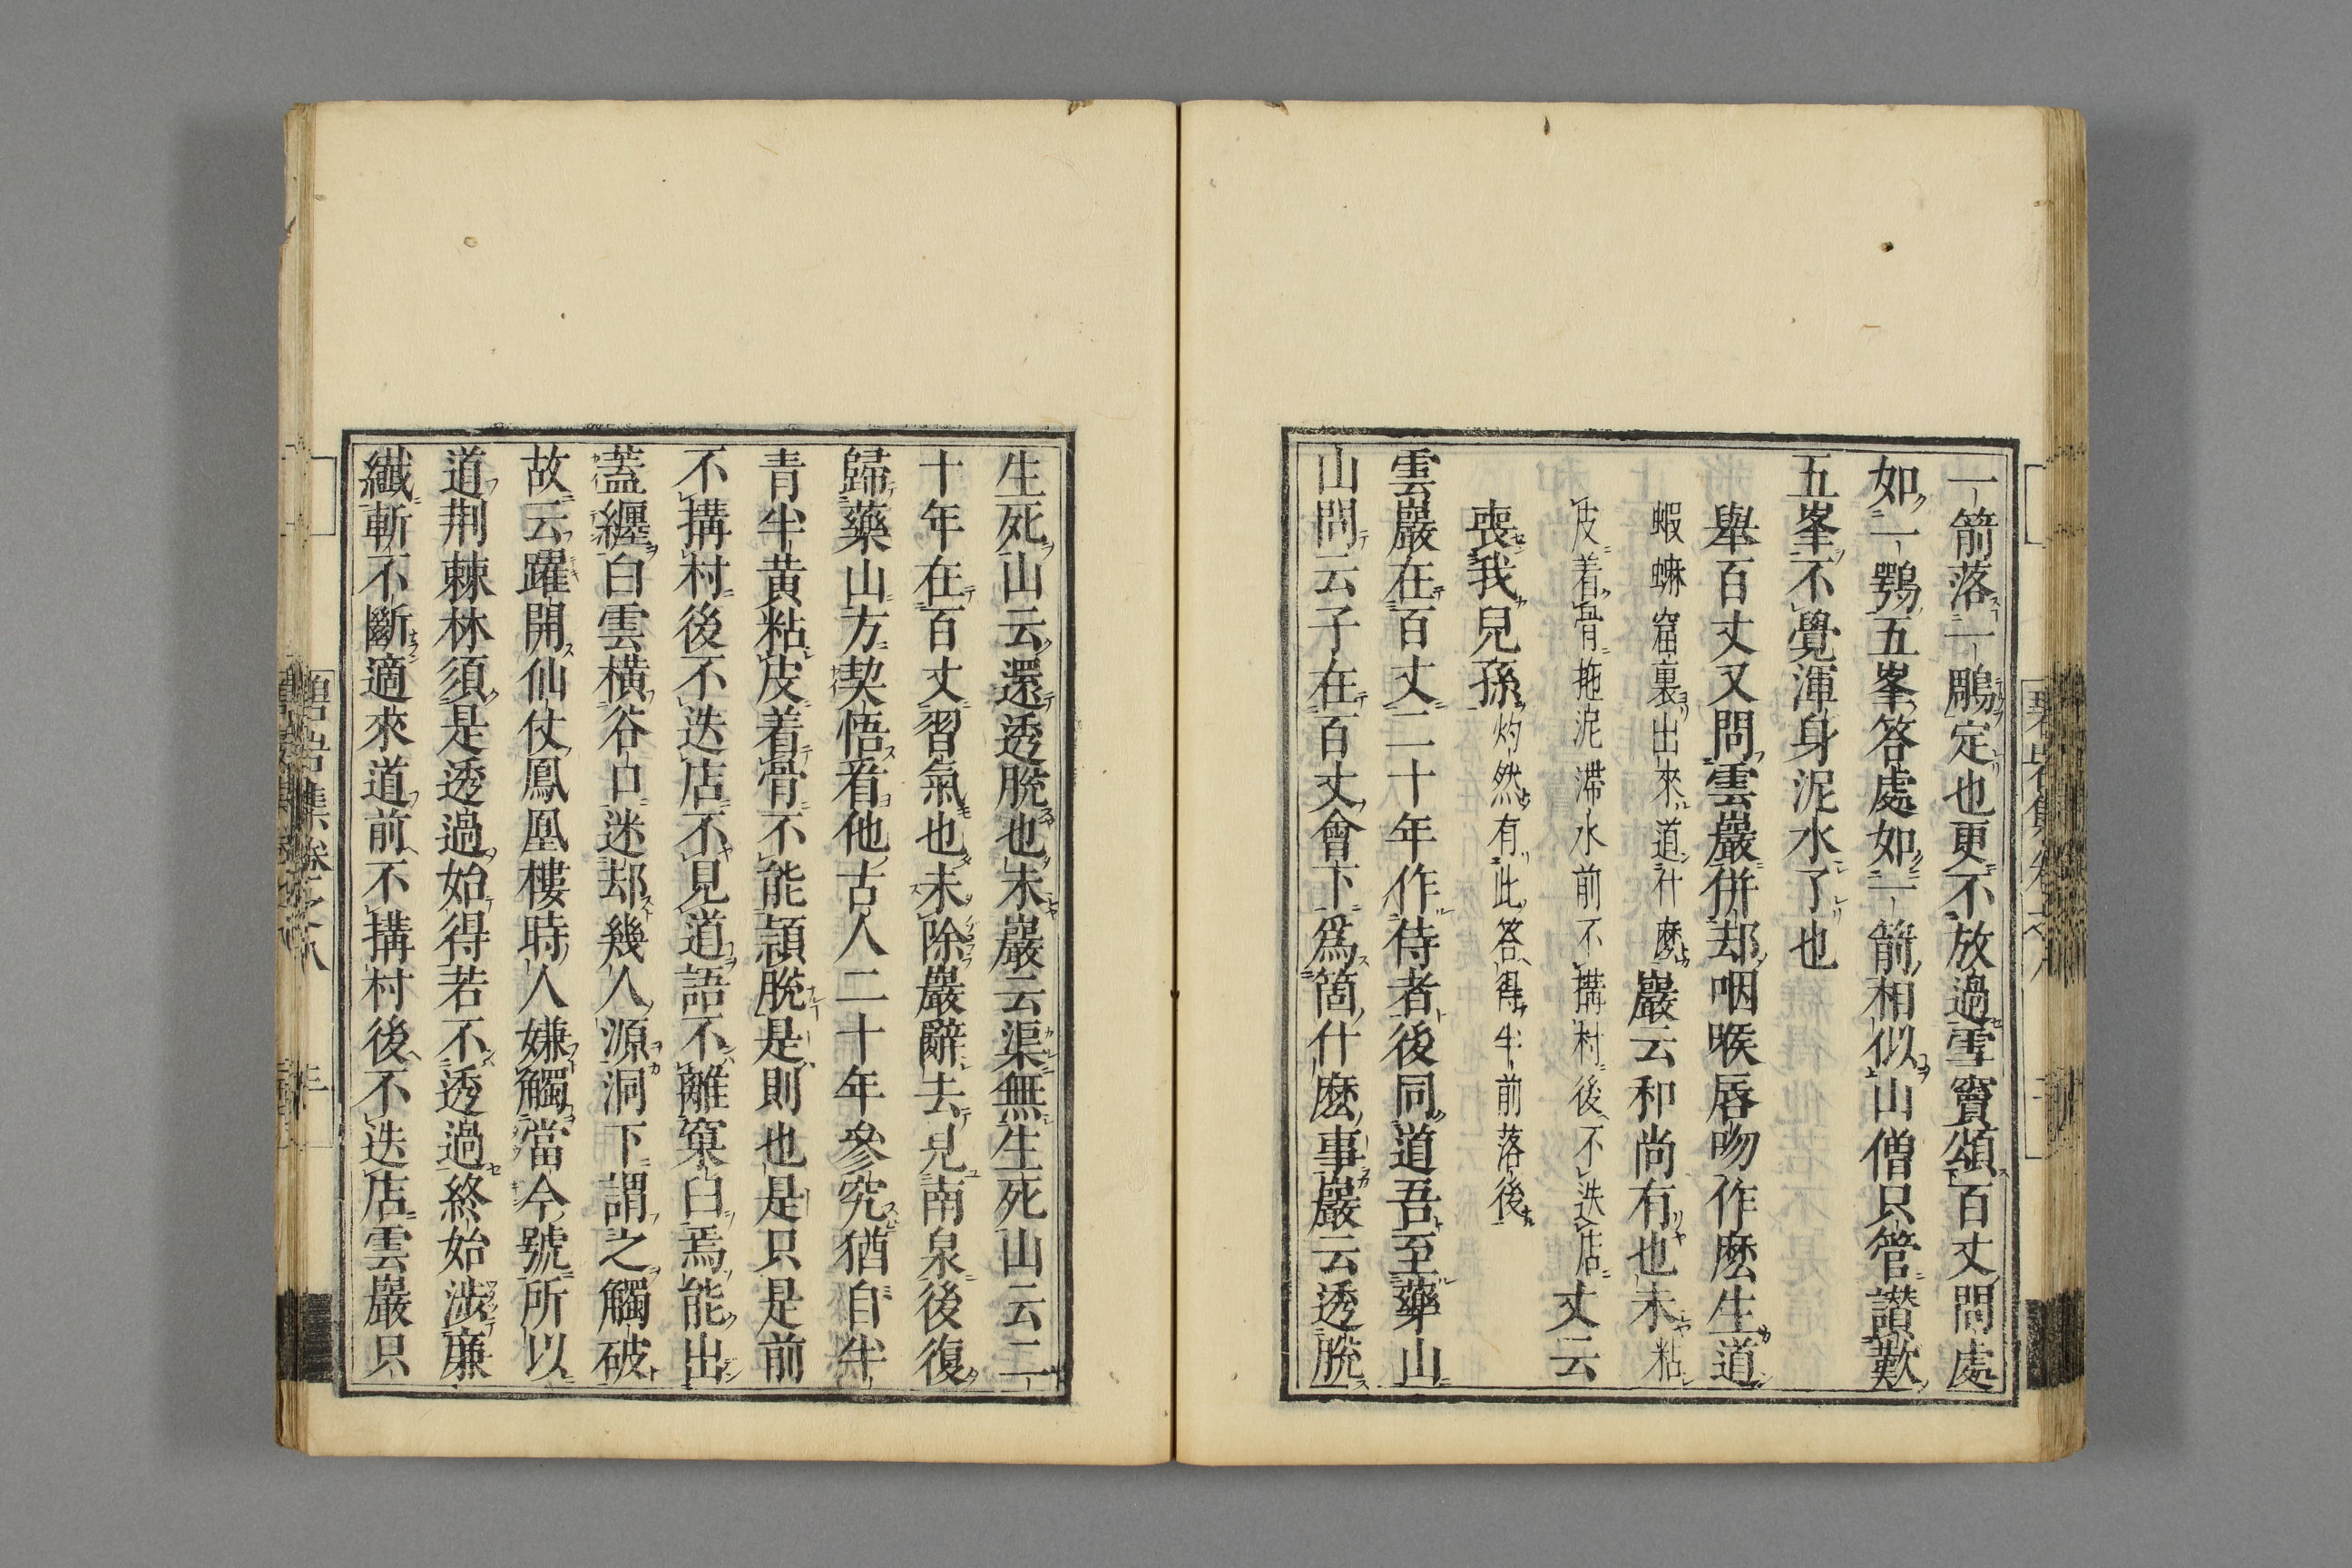 一箭落一鵰定也更不放過雪竇頌百丈問處
如一鶚五峯答處如一箭相似山僧只管讃歎
五峯不覺渾身泥水了也
舉百丈又問雲巖併却咽喉唇吻作麽生道
蝦蟆窟裏出來道什麽巖云和尚有也未粘
皮着骨拖泥滯水前不搆村後不迭店丈云
喪我兒孫灼然有此答得半前落後
雲巖在百丈二十年作侍者後同道吾至藥山
山問云子在百丈會下爲箇什麽事巖云透脫
生死山云還透脫也未巖云渠無生死山云二
十年在百丈習氣也未除巖辭去見南泉後復
歸藥山方契悟看他古人二十年參究猶自半
青半黄粘皮着骨不能頴脫是則也是只是前
不搆村後不迭店不見道語不離窠臼焉能出
蓋纏白雲橫谷口迷却幾人源洞下謂之觸破
故云躍開仙仗鳳凰樓時人嫌觸當今號所以
道荆棘林須是透過始得若不透過終始涉廉
纎斬不斷適來道前不搆村後不迭店雲巖只
碧岩集卷之八